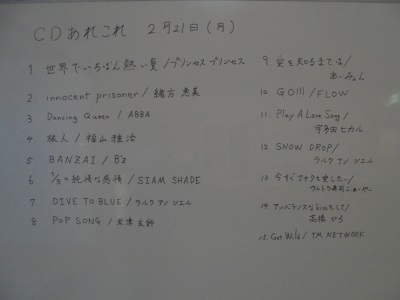 CDあれこれ 2月21日(月)
1 世界でいちばん熱い夏/プリンセス プリンセス
2 innocent prisoner/緒方 恵美
3 Dancing Queen/ABBA
4 旅人/福山 雅治
5 BANZAI/B'z
6 1/3の純情な感情/SIAM SHADE
7 DIVE TO BLUE/ラルク アン シエル
8 POP SONG/米津 玄師
9 愛を知るまでは/
あいみょん
10 GO!!!/FLOW
11 Play A Love Song/
宇多田ヒカル
12 SNOW DROP/
ラルク アン シエル
13 今すぐアナタを愛したい/
ウルトラ寿司ふぁいやー
14 アンバランスなkissをして/
高橋 ひろ
15 Get Wild/TM NETWORK